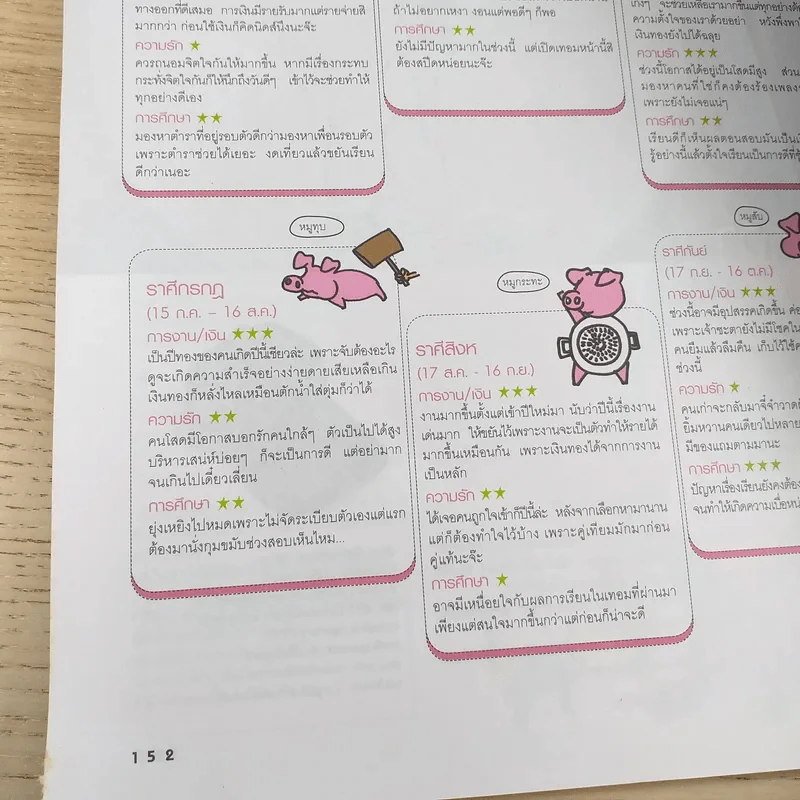 ทางออกที่ดีเสมอ การเงินมีรายรับมากแต่รายจ่ายสิ
มากกว่า ก่อนใช้เงินก็คิดนิดส์นึงนะจ๊ะ
ความรัก ★
ควรถนอมจิตใจกันให้มากขึ้น หากมีเรื่องกระทบ
กระทั่งจิตใจกันก็ให้นึกถึงวันดีๆ เข้าไว้จะช่วยทำให้
ทุกอย่างดีเอง
การศึกษา ★★
มองหาตำราที่อยู่รอบตัวดีกว่ามองหาเพื่อนรอบตัว
เพราะตำราช่วยได้เยอะ งดเที่ยวแล้วขยันเรียน
ดีกว่าเนอะ
ถ้าไม่อยากเหงา งอนแต่พอดีๆ ก็พอ
การศึกษา ★★
ยังไม่มีปัญหามากในช่วงนี้ แต่เปิดเทอมหน้านี้สิ
ต้องสปีดหน่อยนะจ๊ะ
ความตั้งใจของเราด้วยอย่า หวังพึ่งพา
เงินทองยังไปได้ฉลุย
ความรัก ★★★
ช่วงนี้โอกาสได้อยู่เป็นโสดมีสูง ส่วน
มองหาคนที่ใช่ก็คงต้องร้องเพลง
เพราะยังไม่เจอแน่ๆ
การศึกษา ★★
เรียนดีก็เห็นผลตอนสอบมันเป็น
รู้อย่างนี้แล้วตั้งใจเรียนเป็นการดีที่
หมูทุบ
ราศีกรกฎ
(15 ก.ค. – 16 ส.ค.)
การงาน/เงิน ★★★
เป็นปีทองของคนเกิดปีนี้เชียวล่ะ เพราะจับต้องอะไร
ดูจะเกิดความสำเร็จอย่างง่ายดายเสียเหลือเกิน
เงินทองก็หลั่งไหลเหมือนตักน้ำใส่ตุ่มก็ว่าได้
ความรัก ★★
คนโสดมีโอกาสบอกรักคนใกล้ๆ ตัวเป็นไปได้สูง
บริหารเสน่ห์บ่อยๆ ก็จะเป็นการดี แต่อย่ามาก
จนเกินไปเดี๋ยวเลี่ยน
การศึกษา ★★
ยุ่งเหยิงไปหมดเพราะไม่จัดระเบียบตัวเองแต่แรก
ต้องมานั่งกุมขมับช่วงสอบเห็นไหม...
หมูกระทะ
ราศีสิงห
(17 ส.ค. - 16 ก.ย.)
การงาน/เงิน ★★★
งานมากขึ้นตั้งแต่เข้าปีใหม่มา นับว่าปีนี้เรื่องงาน
เด่นมาก ให้ขยันไว้เพราะงานจะเป็นตัวทำให้รายได้
มากขึ้นเหมือนกัน เพราะเงินทองได้จากการงาน
เป็นหลัก
ความรัก ★★
ได้เจอคนถูกใจเข้าก็ปีนี้ล่ะ หลังจากเลือกหามานาน
แต่ก็ต้องทำใจไว้บ้าง เพราะคู่เทียมมักมาก่อน
คู่แท้นะจ๊ะ
การศึกษา ★
อาจมีเหนื่อยใจกับผลการเรียนในเทอมที่ผ่านมา
เพียงแต่สนใจมากขึ้นกว่าแต่ก่อนก็น่าจะดี
หมูสับ
ราศีกันย์
(17 ก.ย. - 16 ต.ค.)
การงาน/เงิน ★★★
ช่วงนี้อาจมีอุปสรรคเกิดขึ้น
เพราะเจ้าชะตายังไม่มีโชคใน
คนยืมแล้วลืมคืน เก็บไว้ใช้
ช่วงนี้
ความรัก ★
คนเก่าจะกลับมาจี๋จ๋าวาด
ยิ้มหวานคนเดียวไปหลาย
มีของแถมตามมานะ
การศึกษา ★★★
ปัญหาเรื่องเรียนยังคงต้อง
จนทำให้เกิดความเบื่อ
152